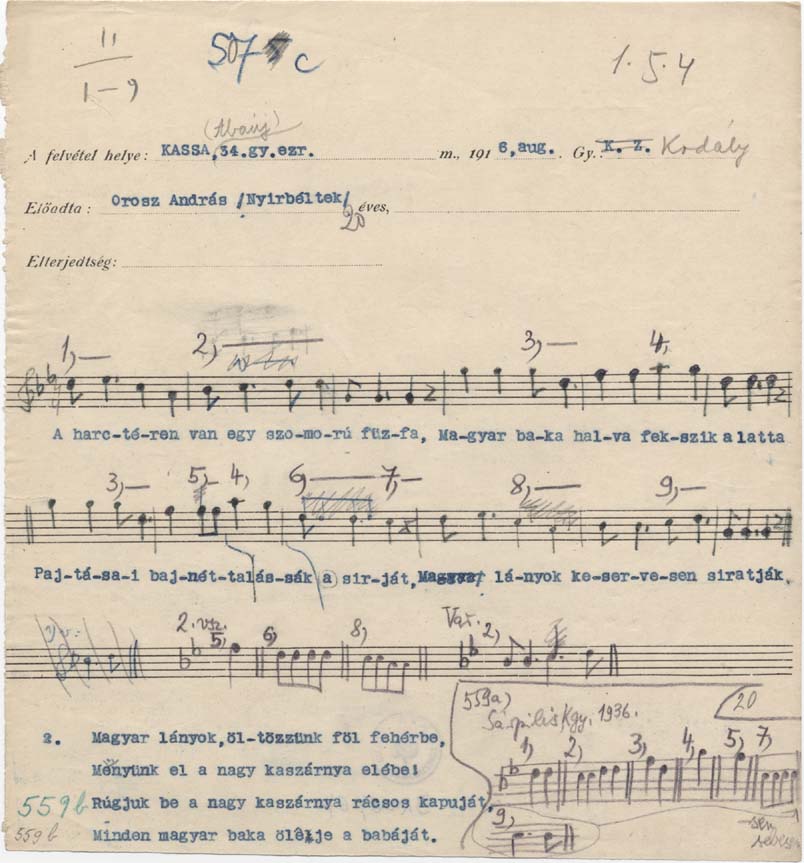 11
1-9
507 c
1.5.4
(Abaúj)
A felvétel helye: KASSA,34.gy.ezr. m., 191 6,aug. Gy.: K. Z. Kodály
Előadta: Orosz András /Nyirbéltek/ 20 éves,
Elterjedtség:
1,— 2,— 3,— 4,
A harc-té-ren van egy szo-mo-rú füz-fa, Ma-gyar ba-ka hal-va fek-szik alatta
3,— 5,— 4, 6,— 7,— 8,— 9,—
Paj-tá-sa-i baj-nét-tal ás-sák a sir-ját, Magyar lá-nyok ke-ser-ve-sen siratják.
2. vsz. 5, 6, 8, Var. 2,
559a)
Sárpilis, Kgy. 1936.
20
1) 2, 3, 4, 5, 7,
2. Magyar lányok,öl-tözzünk föl fehérbe,
Menyünk el a nagy kaszárnya elébe!
559b Rúgjuk be a nagy kaszárnya rácsos kapuját,
9,
559b Minden magyar baka ölelje a babáját.